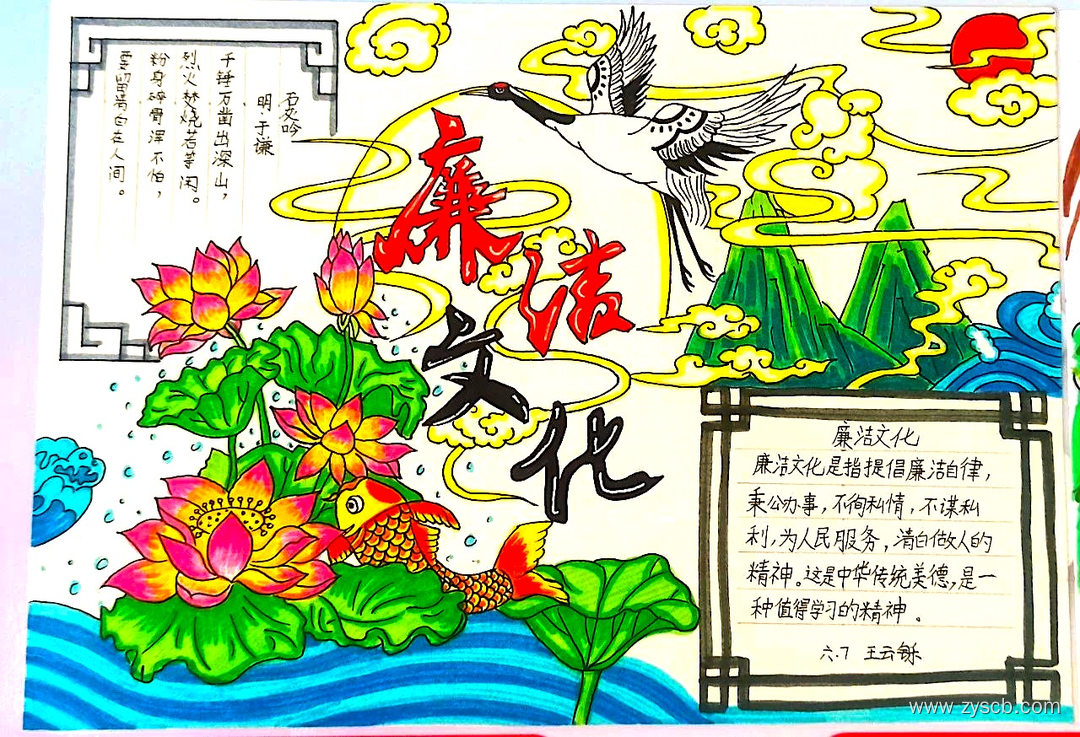 石灰吟
明·于谦
千锤万凿出深山，
烈火焚烧若等闲。
粉身碎骨浑不怕，
要留清白在人间。
廉洁
文化
廉洁文化
廉洁文化是指提倡廉洁自律，
秉公办事，不徇私情，不谋私
利，为人民服务，清白做人的
精神。这是中华传统美德，是一
种值得学习的精神。
六.7 王云铄
www.zyscb.com